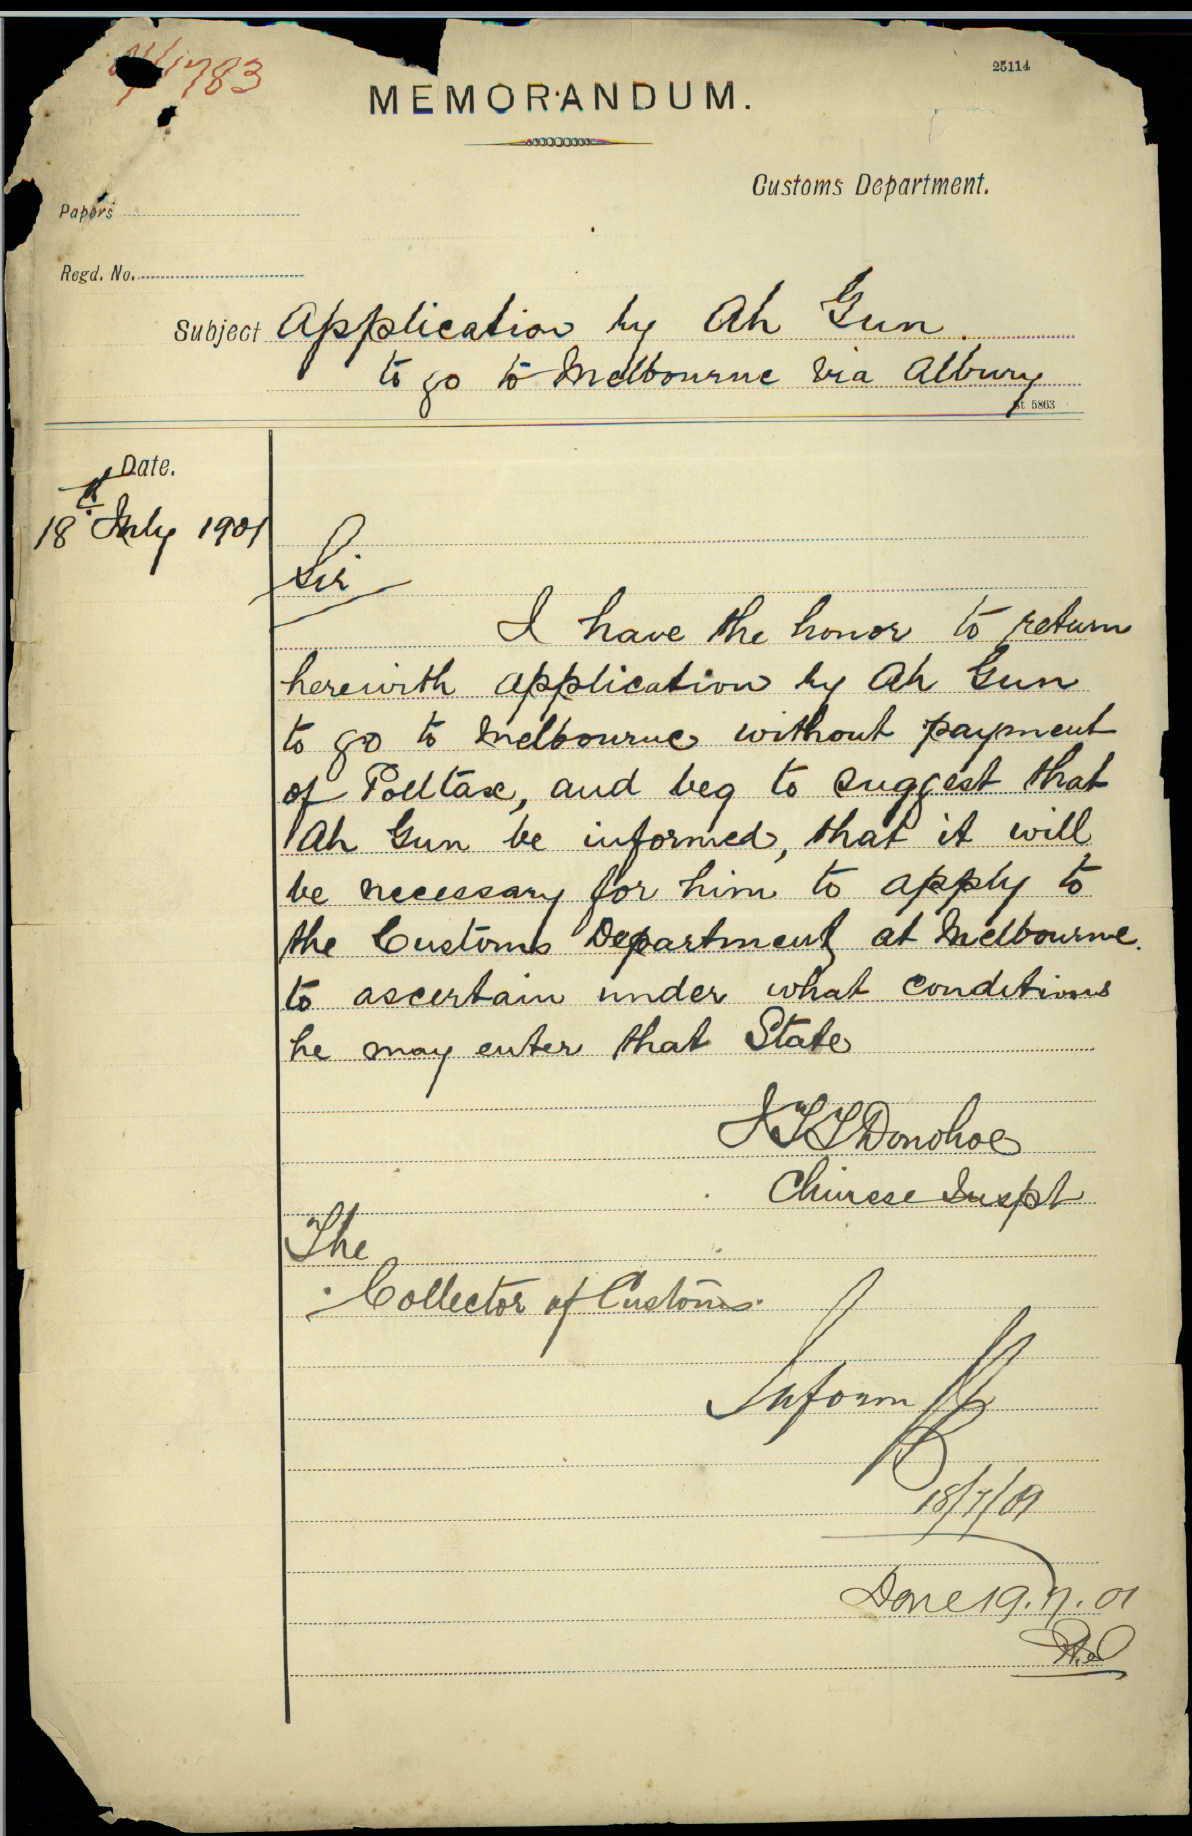 1783
25114
MEMORANDUM.
Customs Department.
Papers
Regd. No.
Subject Application by Ah Gun.
to go to Melbourne via Albury
St 5863
Date.
18th July 1901
Sir
I have the honor to return
herewith application by Ah Gun
to go to Melbourne without payment
of Polltax, and beg to suggest that
Ah Gun be informed, that it will
be necessary for him to apply to
the Customs Department at Melbourne.
to ascertain under what conditions
he may enter that State
Donohoe
Chinese Inspt
The
Collector of Customs.
Inform
18/7/01
Done 19.7.01